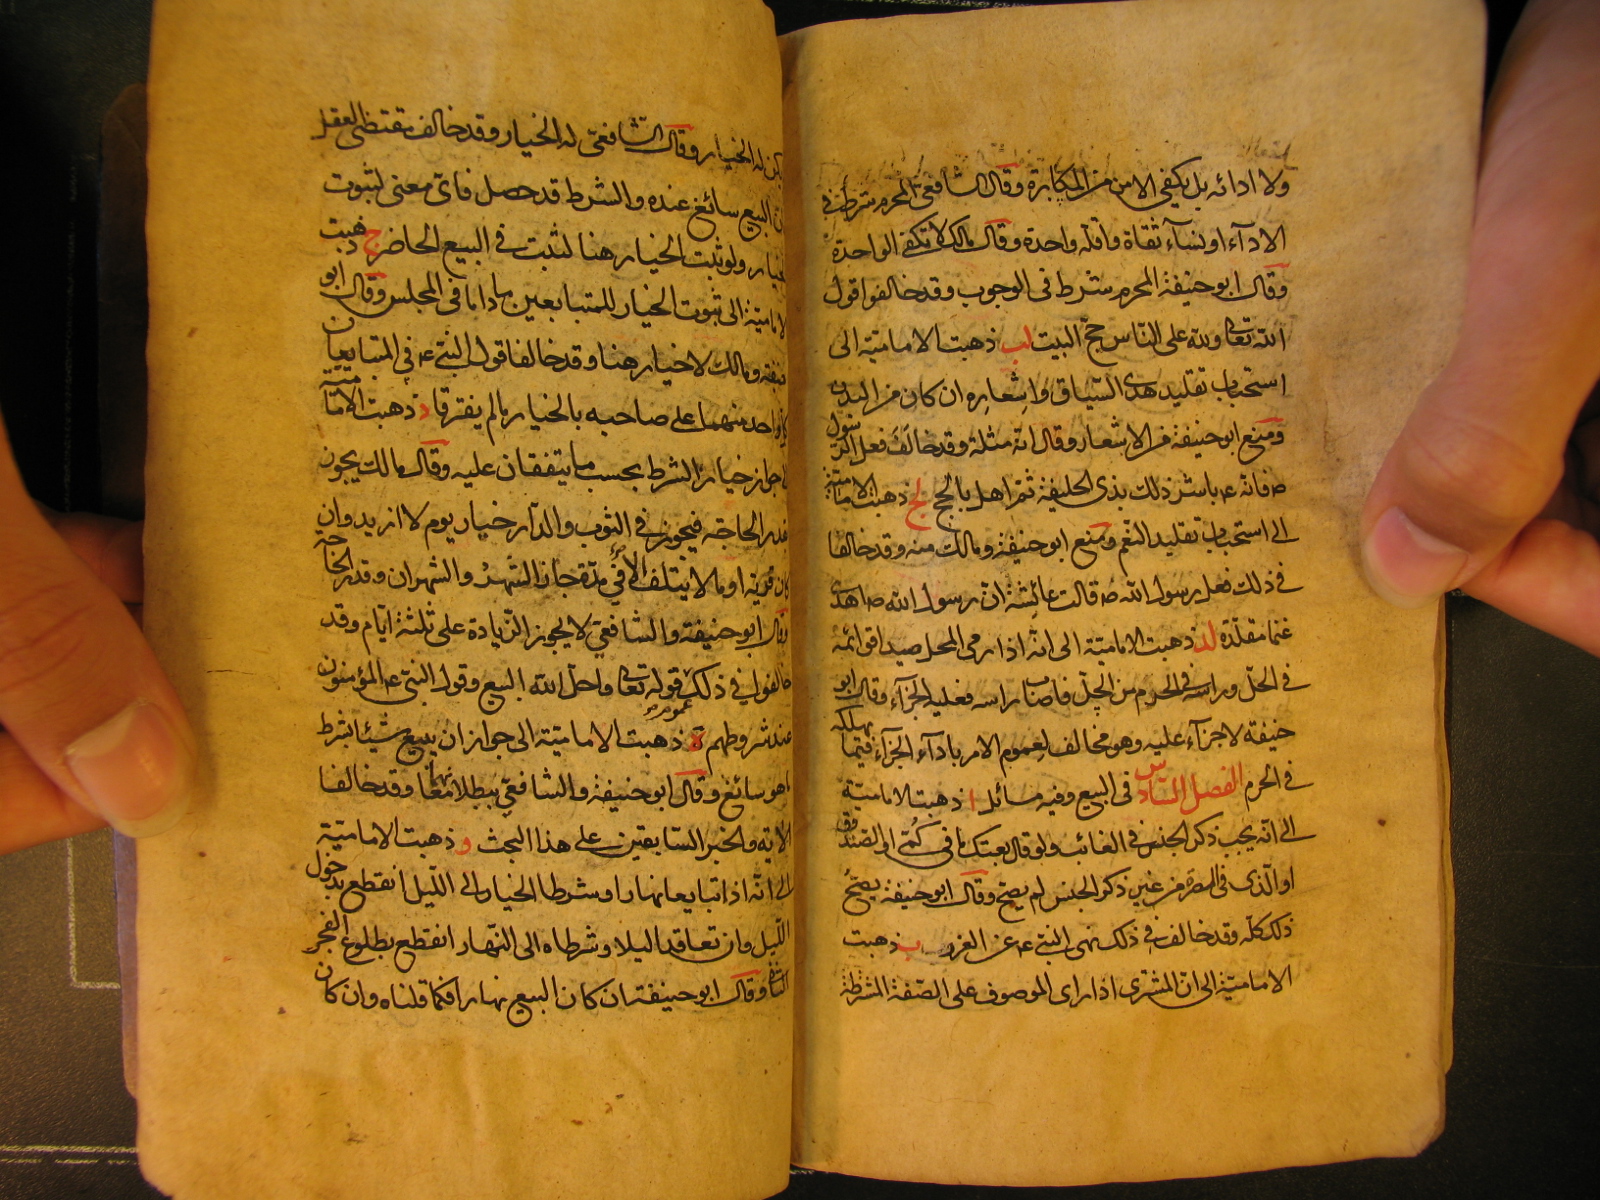 ولا ادائه بل يكفي الامن من المكابرة وقال الشافعي المحرم شرط في
الاداء او نساء ثقاة واقله واحدة وقال مالك لا تكفي الواحدة
وقال ابو حنيفة المحرم شرط في الوجوب وقد خالفوا قول
الله تعالى ولله على الناس حج البيت لب ذهبت الامامية الى
استحباب تقليد هدى السياق واشعاره ان كان من البدن
ومنع ابو حنيفة من الاشعار وقال انه مثلة وقد خالف فعل الرسول
ص فانه ع باشر ذلك بذى الحليفة ثم اهل بالحج لج ذهبت الامامية
الى استحباب تقليد الغنم ومنع ابو حنيفة ومالك منه وقد خالفا
في ذلك فعل رسول الله ص قالت عائشة ان رسول الله ص اهدى
غنما مقلدة لد ذهبت الامامية الى انه اذا رمى المحل صيدا قوائمه
في الحل وراسه في الحرم من الحل فاصاب راسه فعليه الجزاء وقال ابو
حنيفة لا جزاء عليه وهو مخالف لعموم الامر باداء الجزاء فيما يهلكه
في الحرم الفصل السادس في البيع وفيه مسائل ا ذهبت الامامية
الى انه يجب ذكر الجنس في الغائب ولو قال بعتك ما في كمي او الصندوق
او الذى في البصرة من غير ذكر الجنس لم يصح وقال ابو حنيفة يصح
ذلك كله وقد خالف في ذلك نهى النبي ع عن الغرر ب ذهبت
الامامية الى ان المشترى اذا راى الموصوف على الصفة المشترطة
يكن له الخيار وقال الشافعي له الخيار وقد خالف مقتضى العقل
ان البيع سائغ عنده والشرط قد حصل فاى معنى لثبوت
الخيار ولو ثبت الخيار هنا لثبت في البيع الحاضر ج ذهبت
الامامية الى ثبوت الخيار للمتبايعين ما داما في المجلس وقال ابو
حنيفة ومالك لا خيار هنا وقد خالفا قول النبي ع في المتبايعان
كل واحد منهما على صاحبه بالخيار ما لم يفترقا د ذهبت الامامية
خيار الشرط بحسب ما يتفقان عليه وقال مالك يجوز
بقدر الحاجة فيجوز في الثوب والدار خيار يوم لا ازيد وان
كان قرية او ما لا يتلف الا في مدة جاز الشهر والشهران وقدر الحاجة
وقال ابو حنيفة والشافعي لا يجوز الزيادة على ثلثة ايام وقد
خالفوا في ذلك عموم قوله تعالى واحل الله البيع وقول النبي ع المؤمنون
عند شروطهم ه ذهبت الامامية الى جواز ان يبيع شيئا بشرط
هو سائغ وقال ابو حنيفة والشافعي يبطلانهما معا وقد خالفا
الاية والخبر السابقين على هذا البحث و ذهبت الامامية
الى انه اذا تبايعا نهارا وشرطا الخيار الى الليل انقطع بدخول
الليل وان تعاقدا ليلا وشرطاه الى النهار انقطع بطلوع الفجر
الثاني وقال ابو حنيفة ان كان البيع نهارا فكما قلناه وان كان